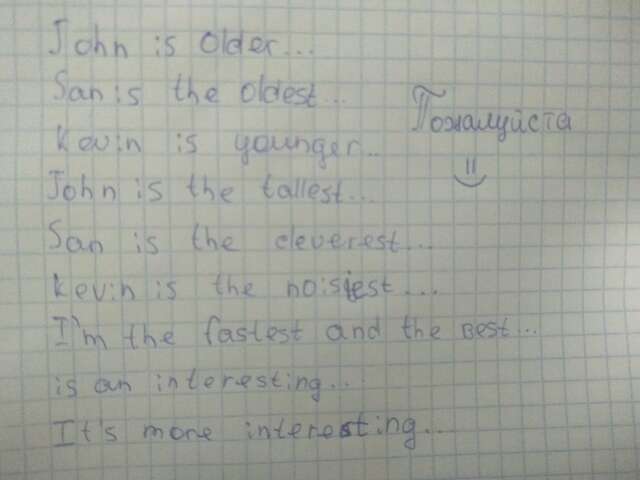 John is older...
San is the oldest...
Пожалуйста
Kevin is younger...
=)
John is the tallest...
San is the cleverest...
Kevin is the noisiest...
I'm the fastest and the best...
is an interesting...
It's more interesting...